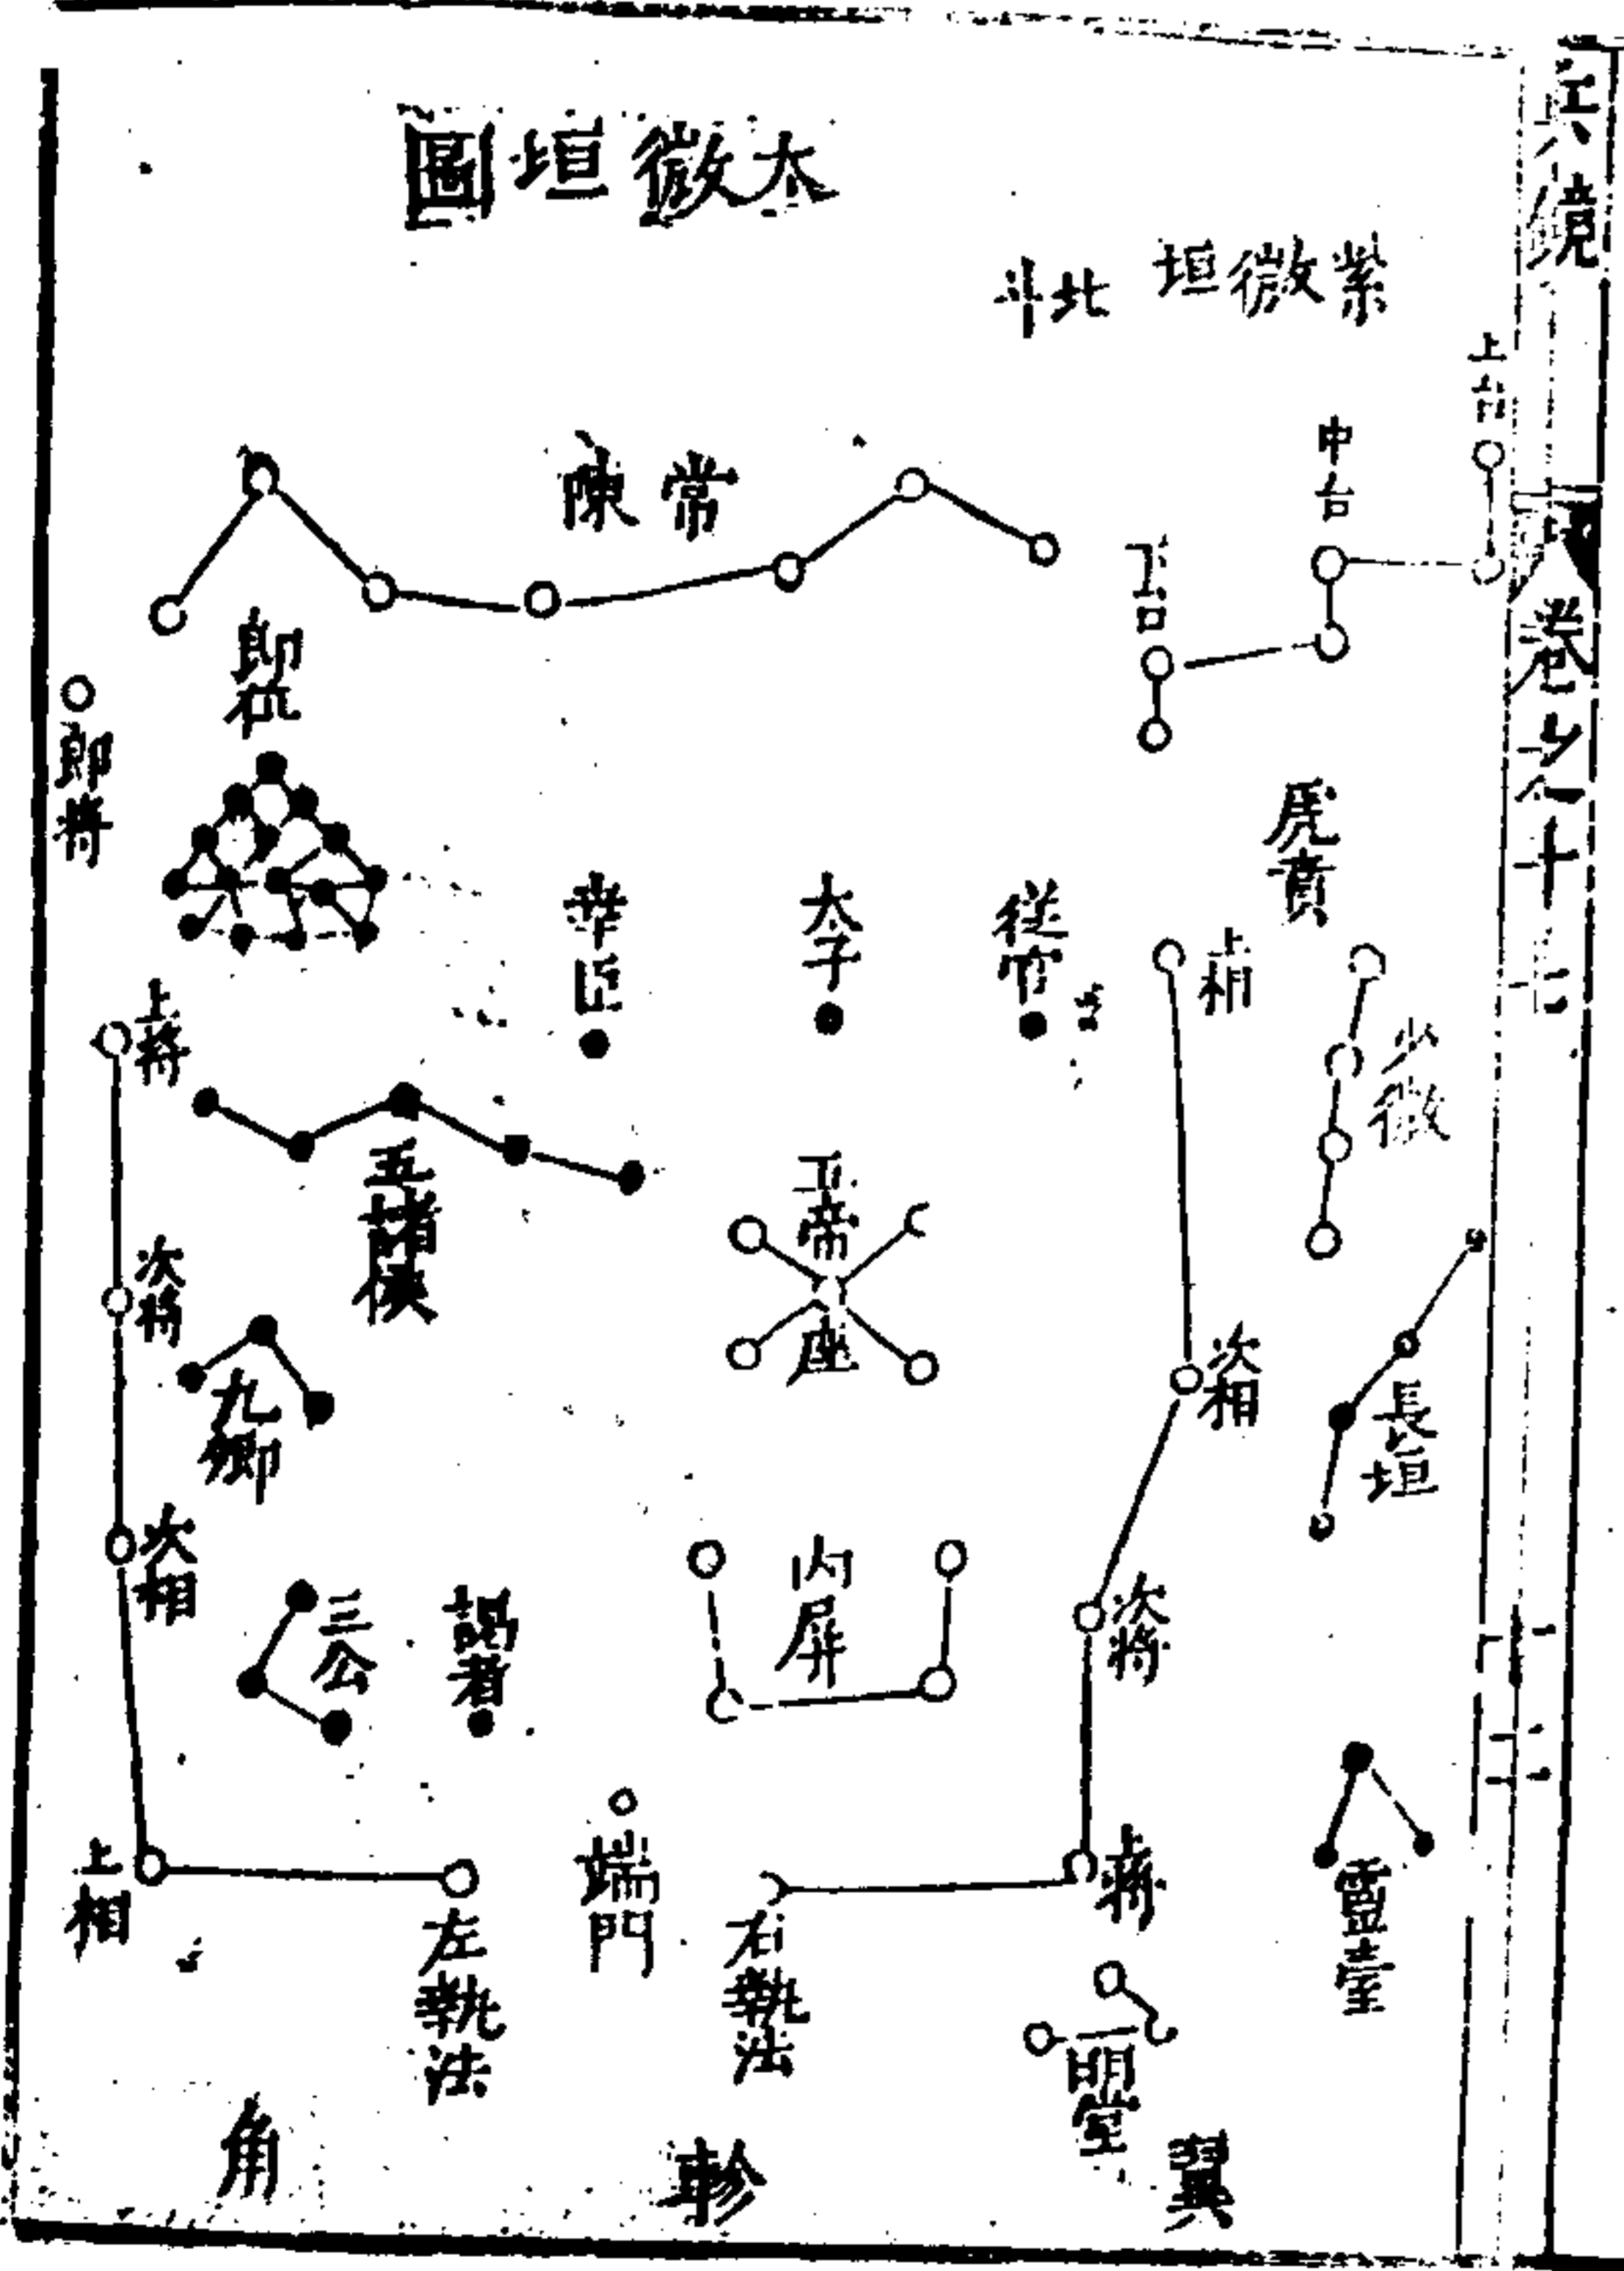 兵鏡
卷之十七
太微垣圖
紫微垣
北斗
上台
中台
下台
常陳
郎位
郎將
虎賁
從官
太子
幸臣
上相
少微
上將
五諸侯
五帝座
次將
次相
長垣
九卿
次相
三公
謁者
內屏
次將
上相
左執法
端門
右執法
上將
靈臺
明堂
角
軫
翼